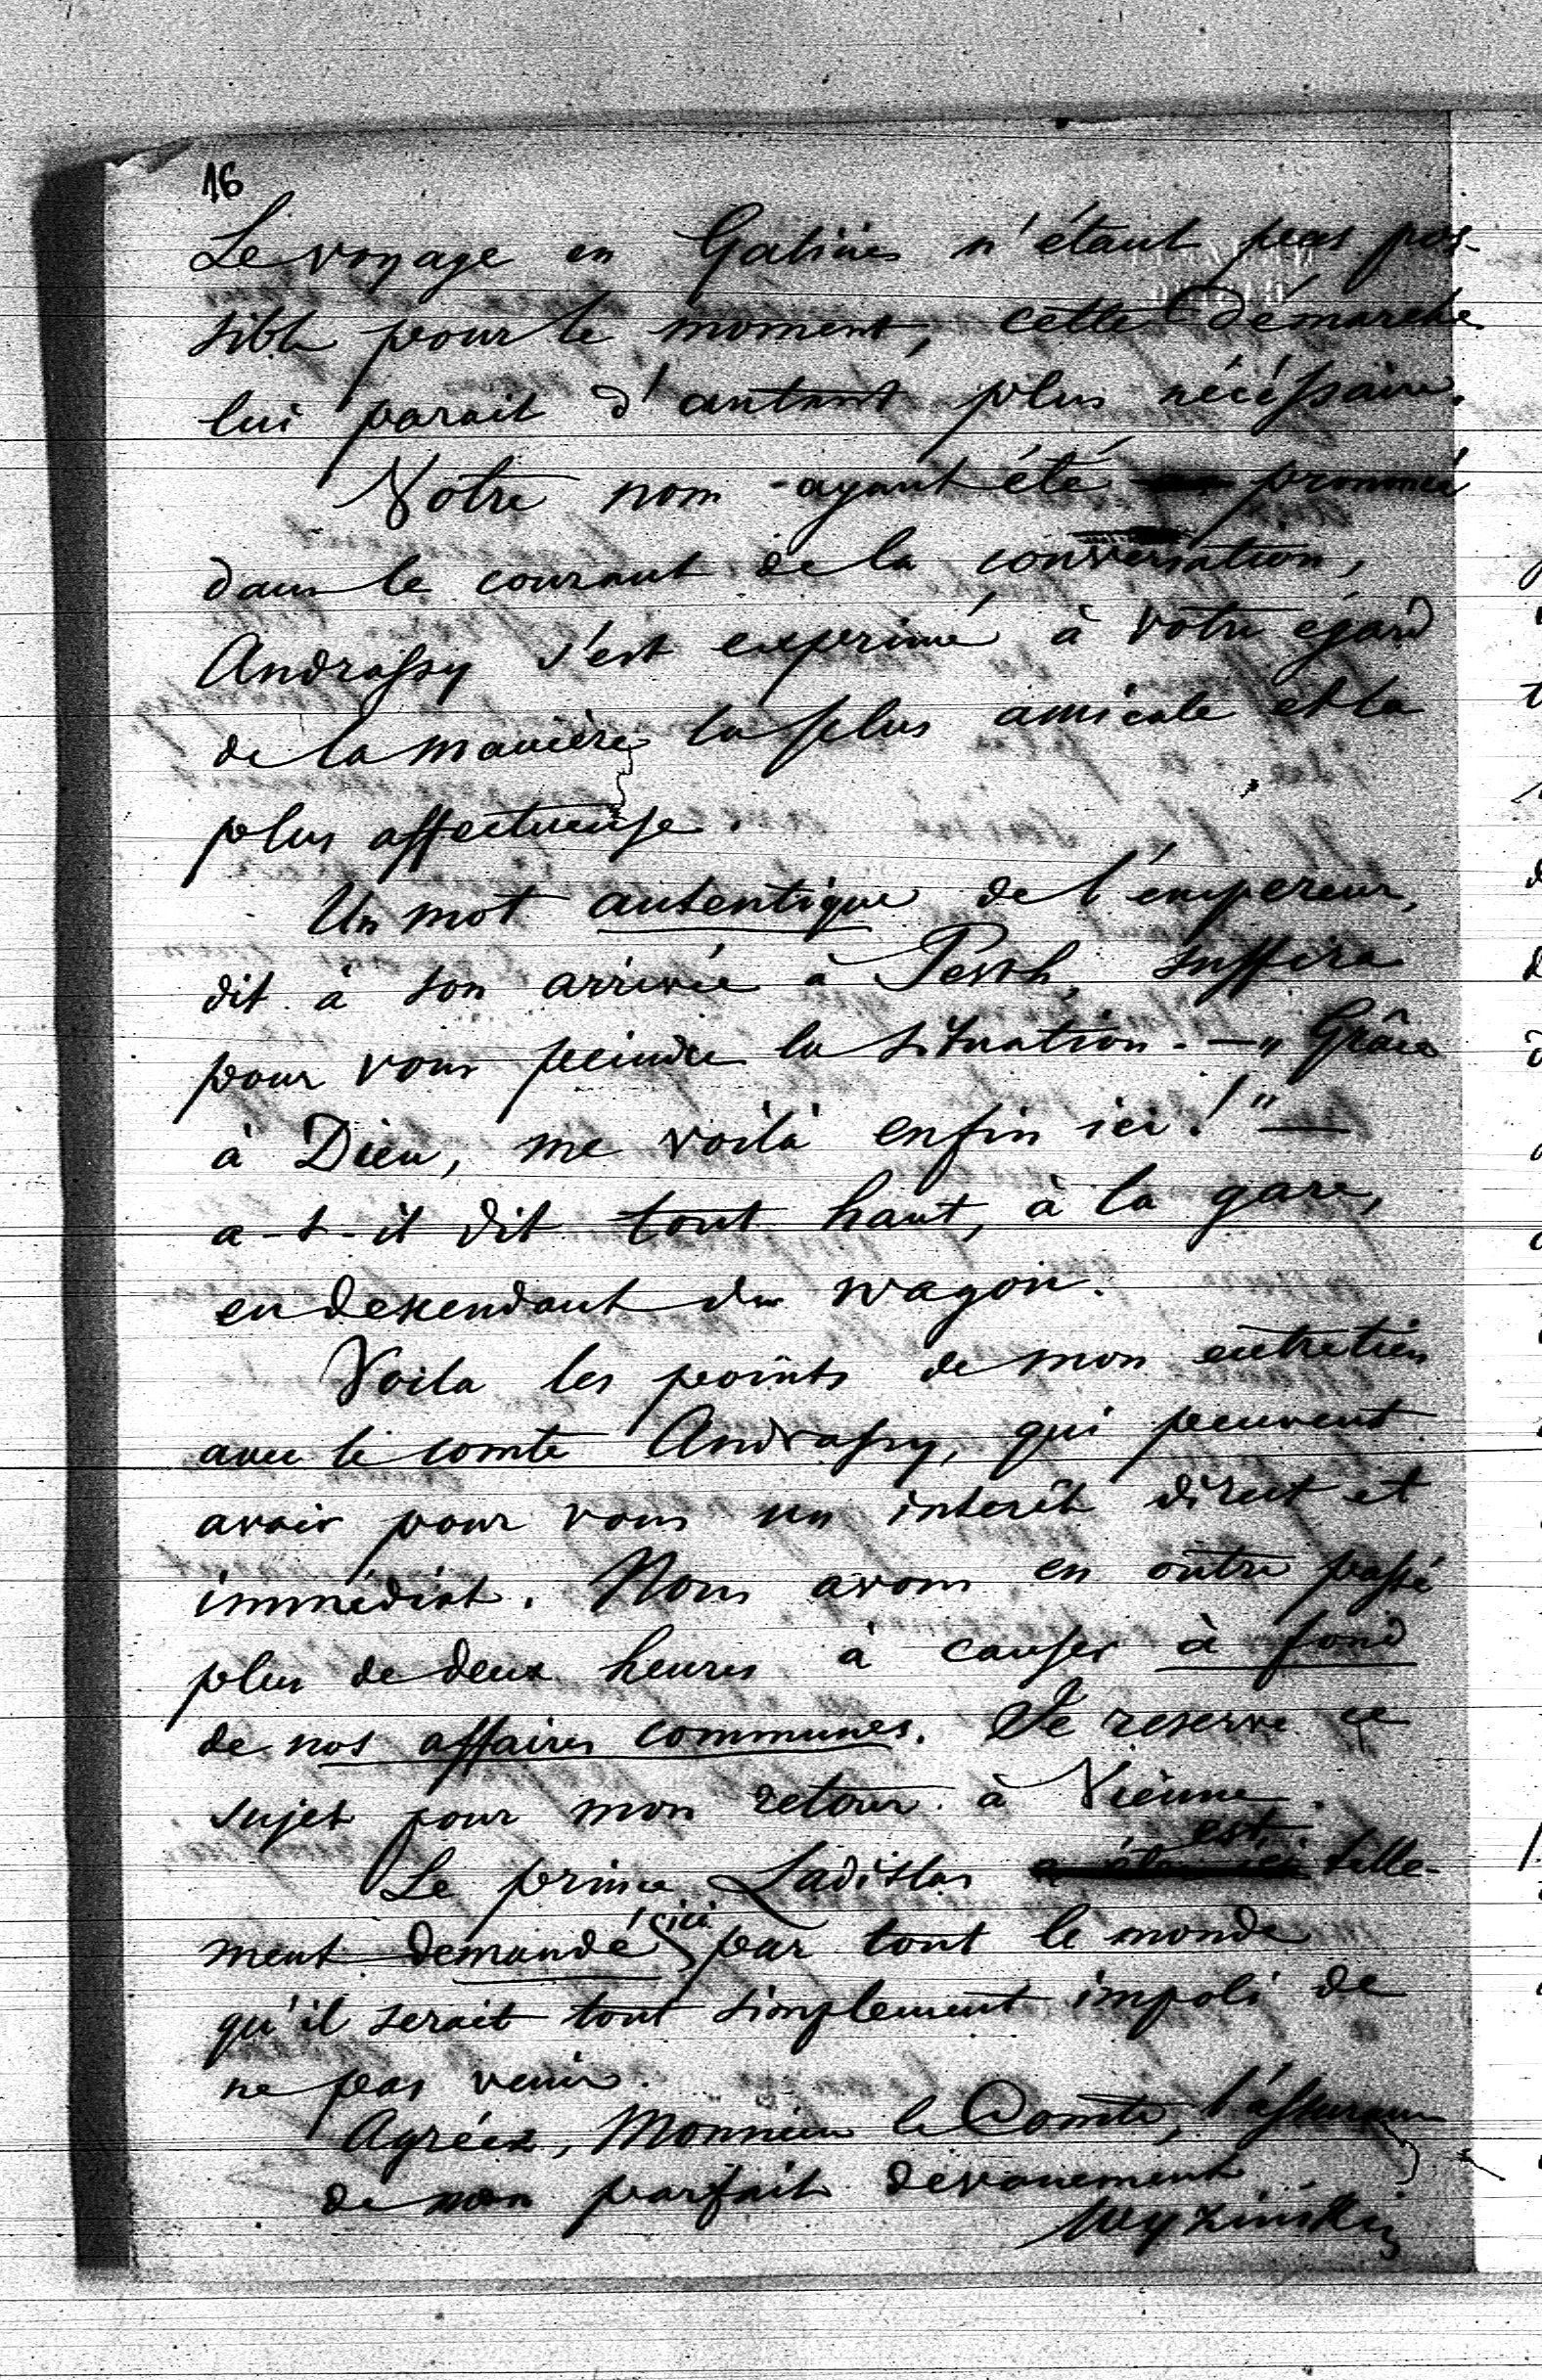 16
Le voyage en Galicie n'étant pas pos-
sible pour le moment, cette démarche
lui parait d'autant plus nécéssaire.
Votre nom ayant été prononcé
dans le courant de la conversation,
Andrassy s'est exprimé à votre égard
de la manière la plus amicale et la
plus affectueuse.
Un mot autentique de l'émpereur,
dit à son arrivée à Pesth, suffira
pour vous peindre la situation. — „Grâce
à Dieu, me voilà enfin ici!" —
a-t-il dit tout haut, à la gare,
en descendant du wagon.
Voila les points de mon entretien
avec le comte Andrassy, qui peuvent
avoir pour vous un interêt direct et
immédiat. Nous avons en outre passé
plus de deux heures à causer à fond
de nos affaires communes. Je reserve ce
sujet pour mon retour à Vienne.
Le prince Ladislas est telle-
ment demandé ici par tout le monde
qu'il serait tout simplement impoli de
ne pas venir.
Agréez, Monsieur le Comte, l'assurance
de mon parfait devouement
Wyziński